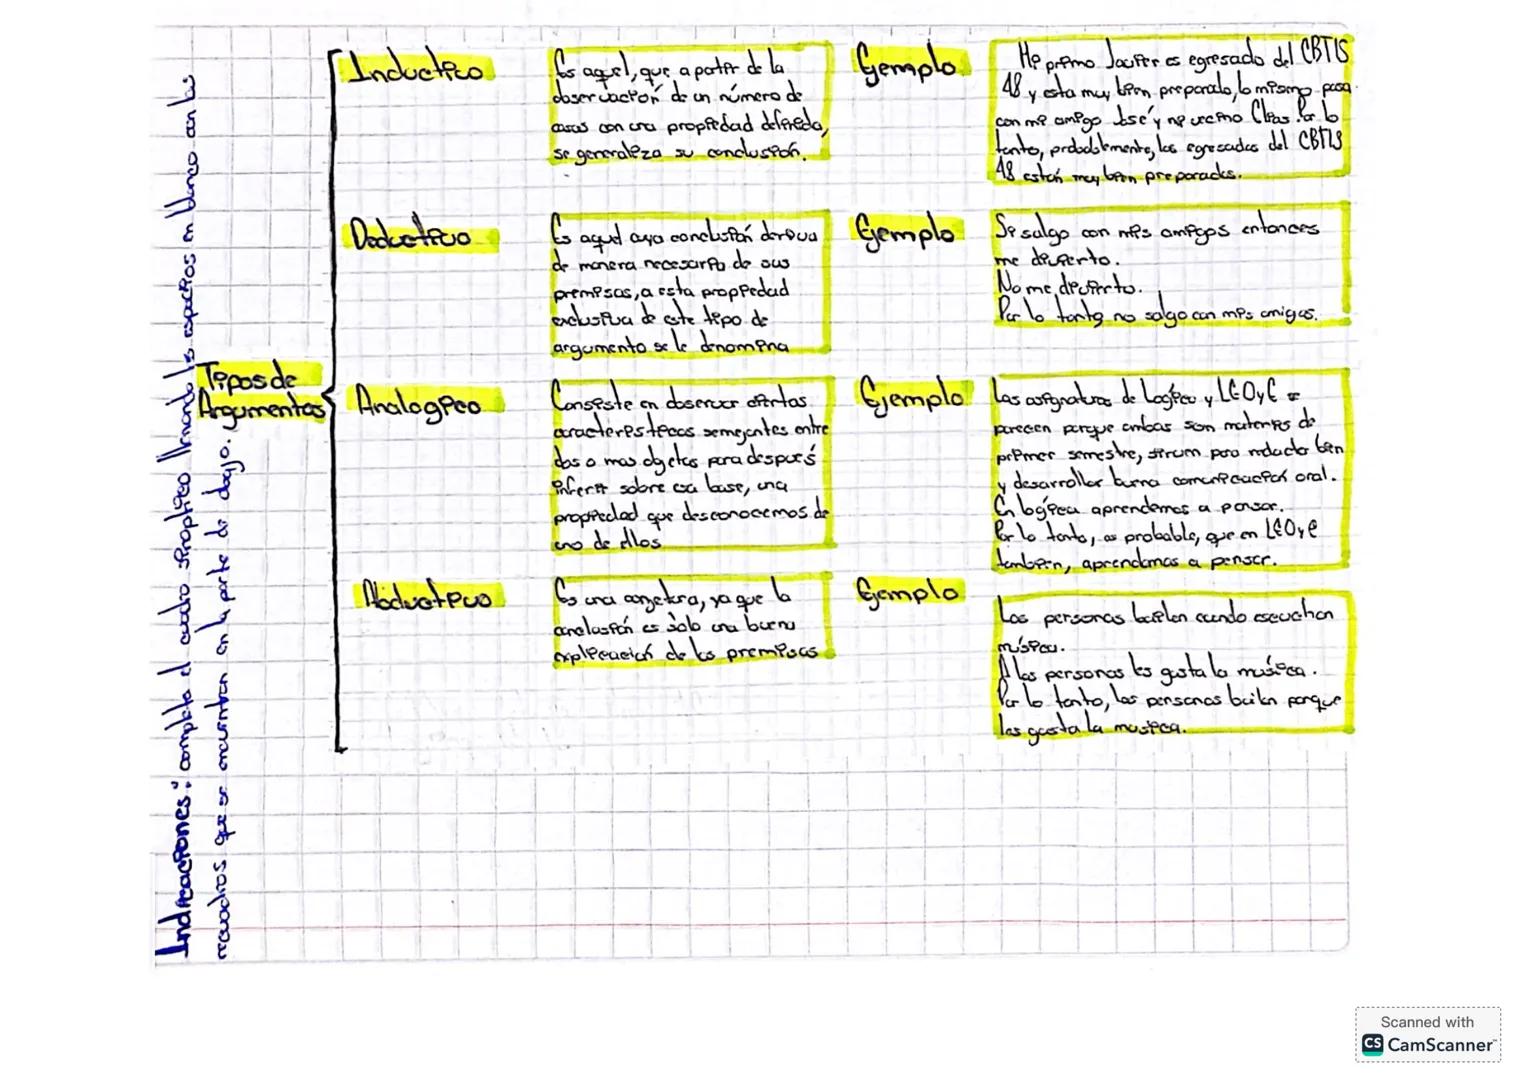 Indicaciones: completa el cuadro sinoptico llenando los espacios en blanco con los
recuadros que se encuentran en la parte de abajo.
Tipos de
Argumentos
Inductivo
Es aquel, que a partir de la
observación de un número de
casos con una propiedad definida,
se generaliza su conclusión.
Ejemplo
Mi primo Javier es egresado del CBTIS
48 y esta muy bien preparado, lo mismo pasa
con mi amigo José y mi vecino Elias. Por lo
tanto, probablemente, los egresados del CBTIS
48 están muy bien preparados.
Deductivo
Es aquel cuya conclusión deriva
de manera necesaria de sus
premisas, a esta propiedad
exclusiva de este tipo de
argumento se le denomina
Ejemplo
Si salgo con mis amigos entonces
me divierto.
No me divierto.
Por lo tanto no salgo con mis amigos.
Analogico
Consiste en observar ciertas
caracteristicas semejantes entre
dos o mas objetos para después
inferir sobre esa base, una
propiedad que desconocemos de
uno de ellos
Ejemplo
Las asignaturas de Logica y LEOyE se
parecen porque ambas son materias de
primer semestre, sirven para redactar bien
y desarrollar buena comunicación oral.
En lógica aprendemos a pensar.
Por lo tanto, es probable, que en LEOyE
tambien, aprendamos a pensar.
Abductivo
Es una conjetura, ya que la
conclusión es sólo una buena
explicación de las premisas
Ejemplo
Las personas bailan cuando escuchan
música.
A las personas les gusta la música.
Por lo tanto, las personas bailan porque
les gusta la musica.
Scanned with
CS CamScanner